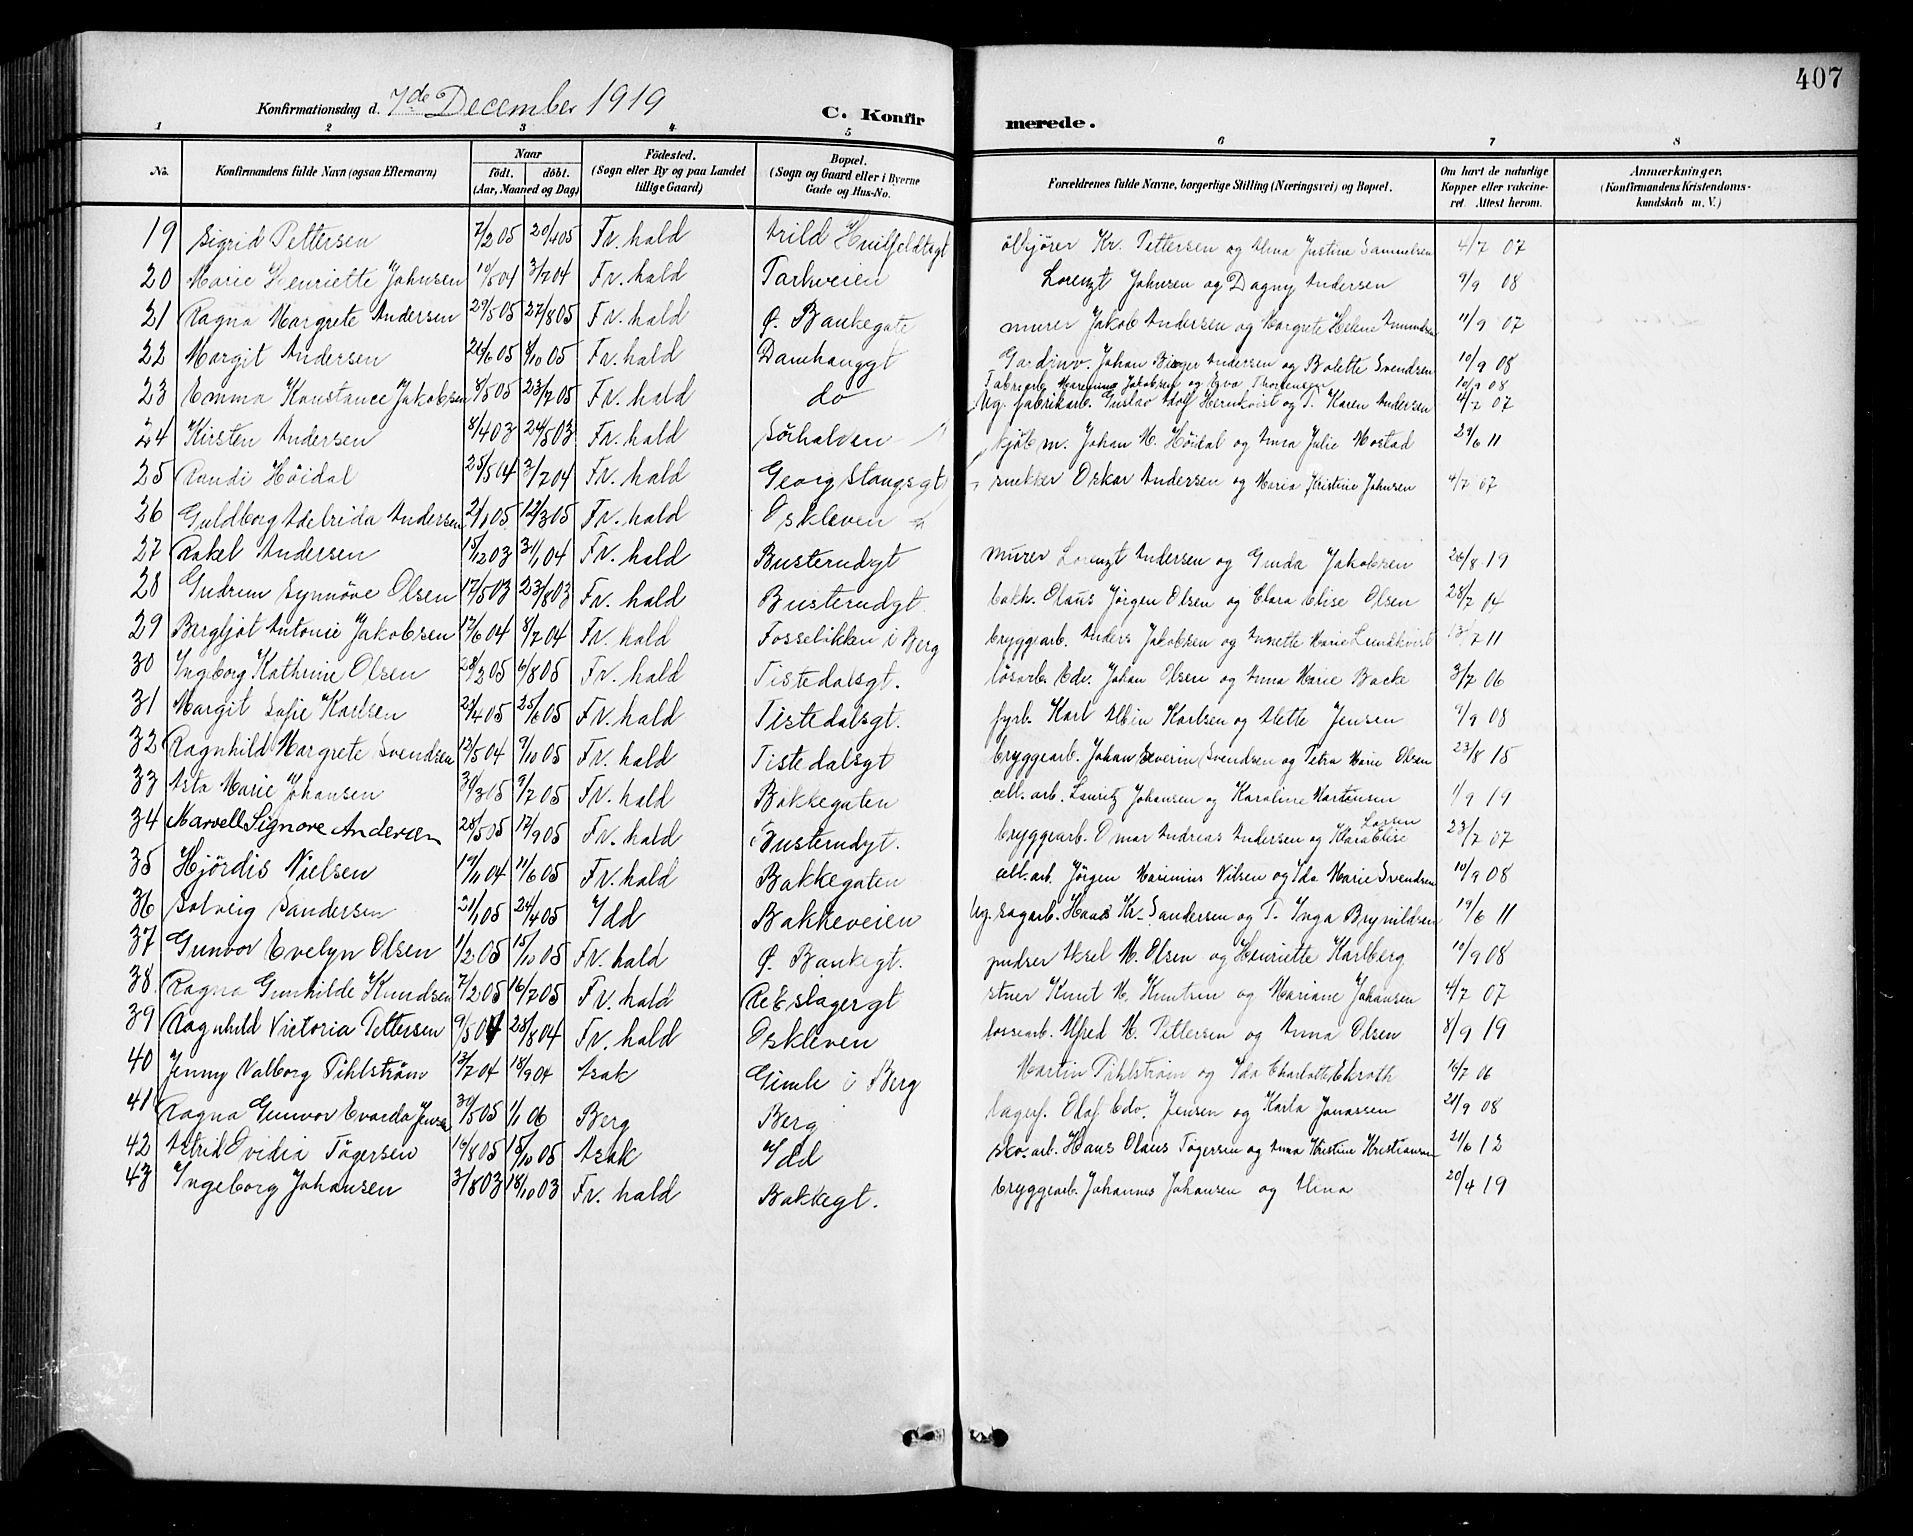 407
Konfirmationsdag d. 7de December 1919 C. Konfir merede.
1 2 3 4 5 6 7 8
No. Konfirmandens fulde Navn (ogsaa Efternavn) Naar födt. döbt. (Aar, Maaned og Dag) Födested. (Sogn eller By og paa Landet tillige Gaard) Bopæl. (Sogn og Gaard eller i Byerne Gade og Hus-No. Forældrenes fulde Navne, borgerlige Stilling (Næringsvei) og Bopæl. Om havt de naturlige Kopper eller vakcineret. Attest herom. Anmærkninger. (Konfirmandens Kristendomskundskab m. V.)
19 Sigrid Pettersen 7/2 05 20/4 05 Fr. hald Arild Huitfeldtsgt ölkjörer Kr. Pettersen og Alma Justine Samuelsen 4/7 07
20 Marie Henriette Johnsen 10/5 04 3/7 04 Fr. hald Parkveien Lorenzt Johnsen og Dagny Andersen 9/9 08
21 Ragna Margrete Andersen 29/5 05 27/8 05 Fr. hald Ø. Bankegate murer Jakob Andersen og Margrete Helene Amundsen 11/9 07
22 Margit Andersen 21/6 05 8/10 05 Fr. hald Damhauggt Johan Andersen og Bolette Svendsen 10/9 08
23 Emma Konstance Jakobsen 8/5 05 23/7 05 Fr. hald do Fabrigarb. Jakobsen og Eva 10/9 08
24 Kirsten Andersen 8/4 03 24/5 03 Fr. hald Sörhalden Ug. fabrikarb. Gustav Adolf Hernkvist og T. Karen Andersen 4/7 07
25 Randi Höidal 25/5 04 3/7 04 Fr. hald Georg Stangsgt kjöbm. Johan M. Höidal og Anna Julie Mostad 29/6 11
26 Guldborg Adelrida Andersen 21/1 05 12/3 05 Fr. hald Oskleven snekker Oskar Andersen og Maria Kristine Johnsen 4/7 07
27 Rakel Andersen 15/12 03 31/1 04 Fr. hald Busterudgt murer Lorenzt Andersen og Gunda Jakobsen 26/8 19
28 Gudrun Synnöve Olsen 17/5 03 23/8 03 Fr. hald Busterudgt. bokh. Olaus Jörgen Olsen og Clara Elise Olsen 28/7 04
29 Bergljot Antonie Jakobsen 17/6 04 8/7 04 Fr. hald Fosselökken i Berg bryggearb. Anders Jakobsen og Annette Marie Lundkvist 13/7 11
30 Ingeborg Kathrine Olsen 28/2 05 6/8 05 Fr. hald Tistedalsgt. lösarb. Edv. Johan Olsen og Anna Marie Bache 3/7 06
31 Margit Sofie Karlsen 23/4 05 25/6 05 Fr. hald Tistedalsgt. fyrb. Karl Albin Karlsen og Alette Jensen 9/9 08
32 Ragnhild Margrete Svendsen 13/5 04 9/10 05 Fr. hald Tistedalsgt bryggearb. Johan Severin Svendsen og Petra Marie Olsen 23/8 15
33 Asta Marie Johansen 30/3 05 9/7 05 Fr. hald Bakkegaten cell. arb. Lauritz Johansen og Karoline Martensen 1/9 19
34 Marvell Signore Andersen 28/5 05 17/9 05 Fr. hald Busterudgt. bryggearb. Omar Andreas Andersen og Klara Elise Larsen 23/7 07
35 Hjördis Nielsen 19/11 04 11/6 05 Fr. hald Bakkegaten cell. arb. Jörgen Marinius Nilsen og Ida Marie Svendsen 10/9 08
36 Solveig Sandersen 21/1 05 24/4 05 Idd Bakkeveien Ug. sagarb. Hans Kr. Sandersen og T. Inga Brynildsen 19/6 11
37 Gunvor Evelyn Olsen 1/2 05 15/10 05 Fr. hald Ø. Bankegt. pudser Aksel M. Olsen og Henriette Karlberg 10/9 08
38 Ragna Gunhilde Knudsen 7/2 05 16/7 05 Fr. hald Reeslagergt Knut M. Knutsen og Mariane Johansen 4/7 07
39 Ragnhild Victoria Pettersen 9/5 04 28/8 04 Fr. hald Oskleven lossearb. Alfred M. Pettersen og Anna Olsen 8/9 19
40 Jenny Valborg Pihlström 13/7 04 18/9 04 Asak Gimle i Berg Martin Pihlström og Ida Charlotte Ekroth 16/7 06
41 Ragna Gunvor Evarda Jensen 30/5 05 1/1 06 Berg Berg lagerf. Olaf Edv. Jensen og Karla Jonassen 21/9 08
42 Astrid Ovidia Tögersen 19/8 05 15/10 05 Asak Idd sko. arb. Hans Olaus Tögersen og Anna Kristine Kristiansen 21/6 12
43 Ingeborg Johansen 31/8 03 18/10 03 Fr. hald Bakkegt. bryggearb. Johannes Johansen og Alma 20/4 19